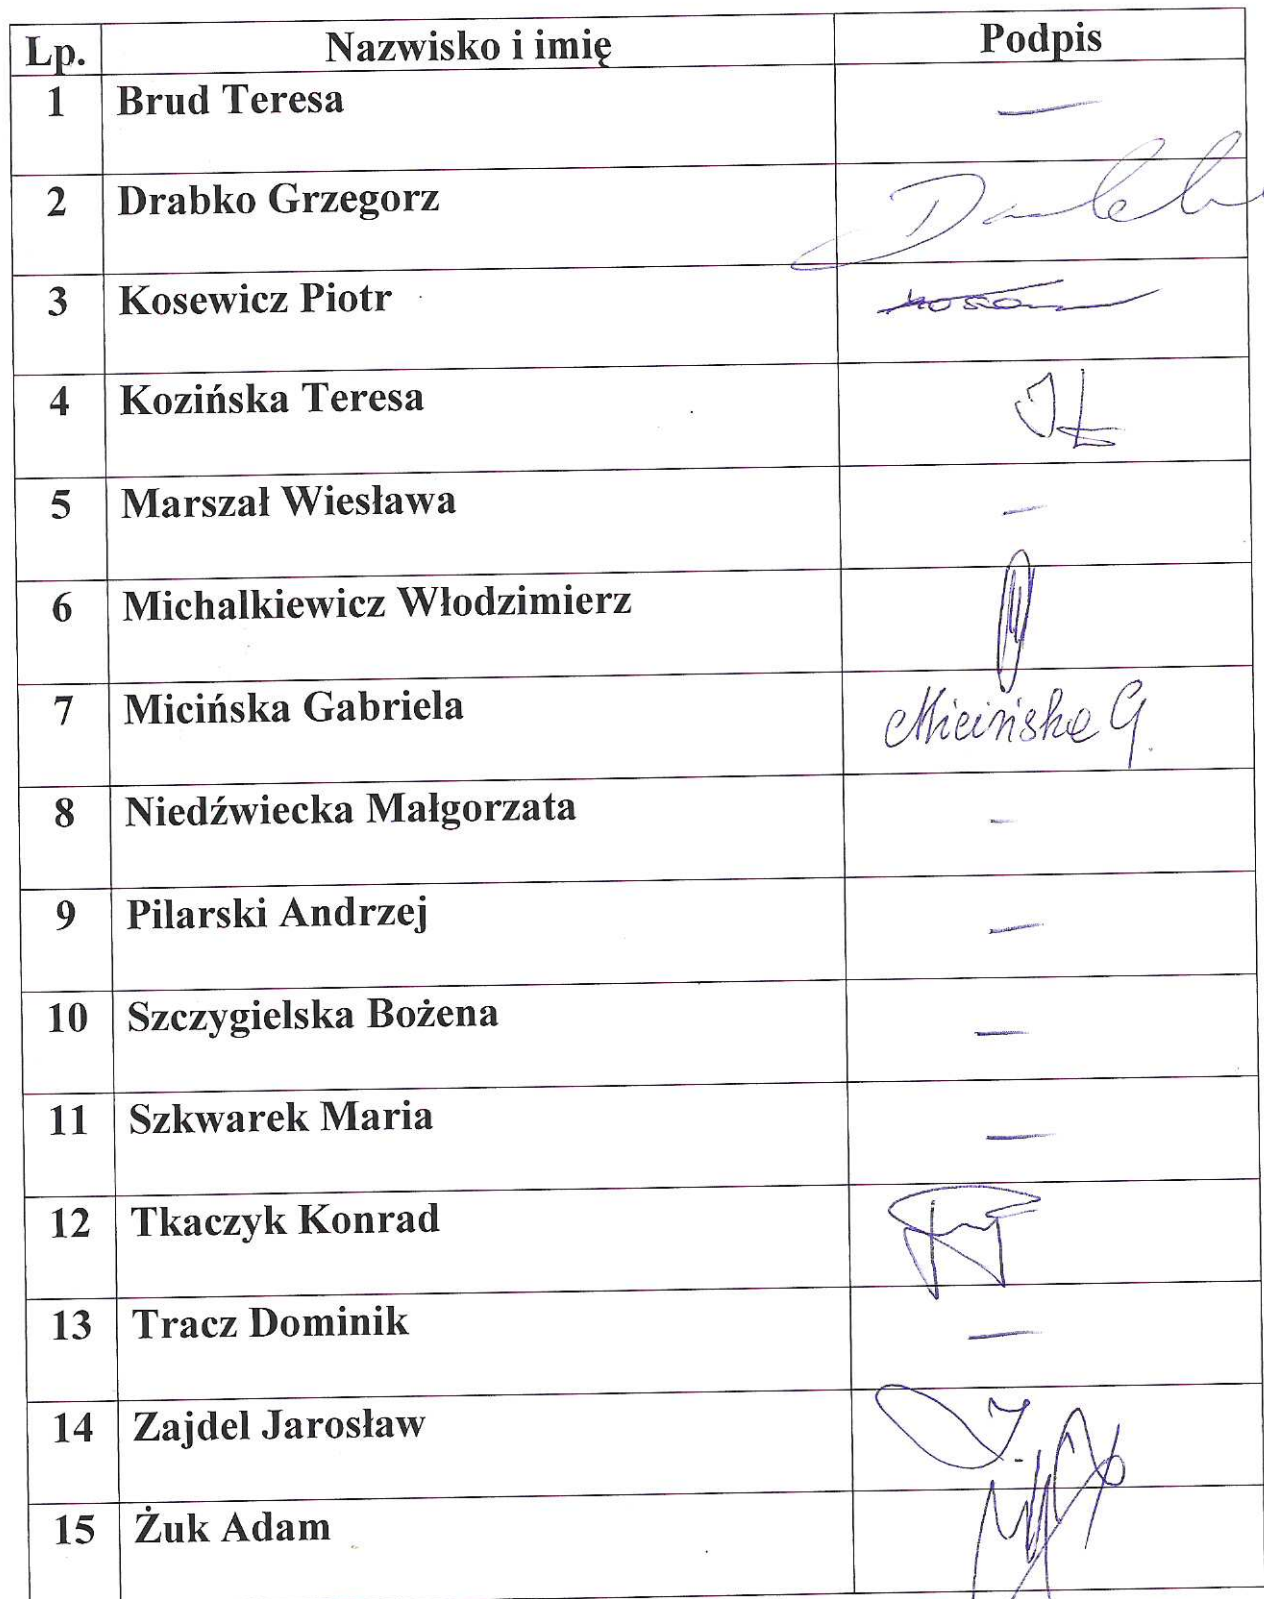 Lp. Nazwisko i imię Podpis
1 Brud Teresa —
2 Drabko Grzegorz
3 Kosewicz Piotr
4 Kozińska Teresa
5 Marszał Wiesława —
6 Michalkiewicz Włodzimierz
7 Micińska Gabriela Micińska G.
8 Niedźwiecka Małgorzata —
9 Pilarski Andrzej —
10 Szczygielska Bożena —
11 Szkwarek Maria —
12 Tkaczyk Konrad
13 Tracz Dominik —
14 Zajdel Jarosław
15 Żuk Adam